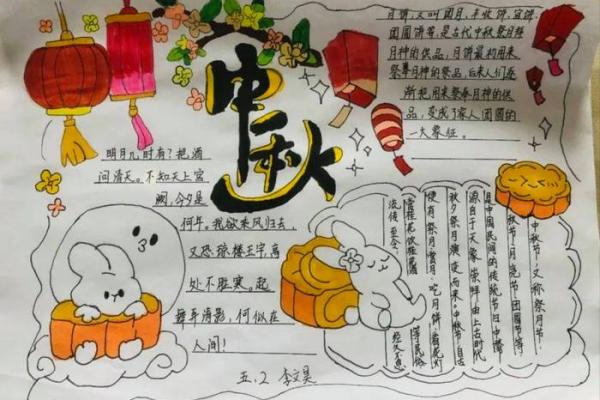 中秋
月饼,又叫团月、丰收饼、宫饼、
团圆饼等,是古代中秋祭拜
月神的供品,月饼最初用来
祭奉月神的祭品,后来人们逐
渐把用来祭奉月神的供
品,变成了家人团圆的
一大象征。
明月几时有?把酒
问清天。不知天上宫
阙,今夕是
何年。我欲乘风归去,
又恐琼楼玉宇,高
处不胜寒。起
舞弄清影,何似在
人间!
中秋节,又称祭月节、
秋节、月亮节、团圆节等,
是中国民间的传统节日中秋
源自于天象崇拜由上古时代
秋夕祭月演变而来。中秋节自古
便有祭月、赏月、吃月饼、看花灯
赏桂花饮桂花酒等民俗
流传至今,经久不息
五.2 李文昊